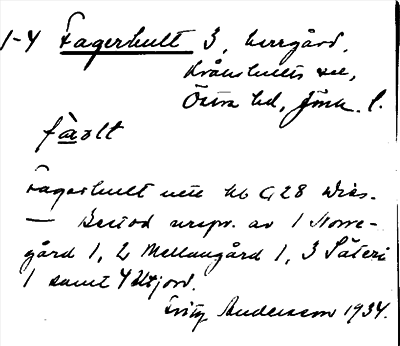 1-4 Fagerhult 3, herrgård,
Kråkshults sn,
Östra hd, Jönk. l.
fàolt
Fagerhult utn kb G 28 Wies.
— Bestod urspr. av 1 Norre-
gård 1, 2 Mellangård 1, 3 Säteri
1 samt 4 Utjord.
Fritz Andersson 1934.